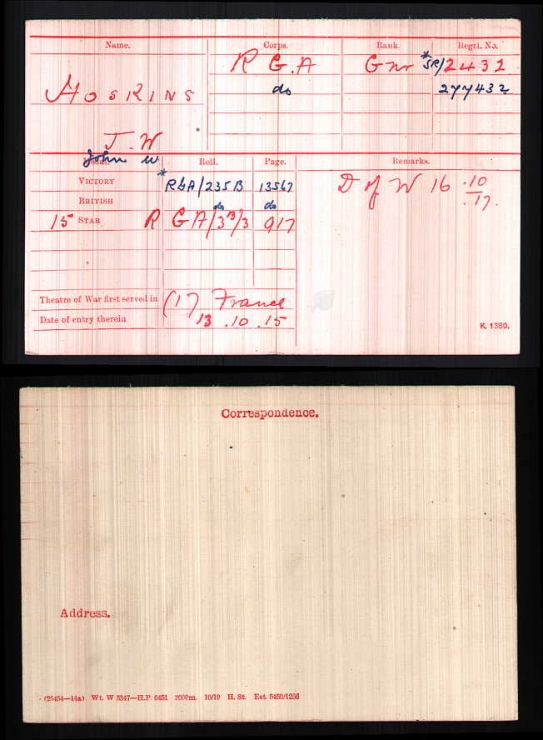 Name. Corps. Rank. Regtl. No.
R G.A Gnr *SR/2432
HOSKINS do 277432
J. W
John W
Medal. Roll. Page. Remarks.
VICTORY *RGA/235B 13567 D of W 16.10.17.
BRITISH do do
15 STAR R G A/3B/3 917
Theatre of War first served in (1) France
Date of entry therein 13.10.15
K. 1380.
Correspondence.
Address.
(25454—14a) Wt. W 5347—H.P. 6451 2000m. 10/19 H. St. Est. 5450/1253